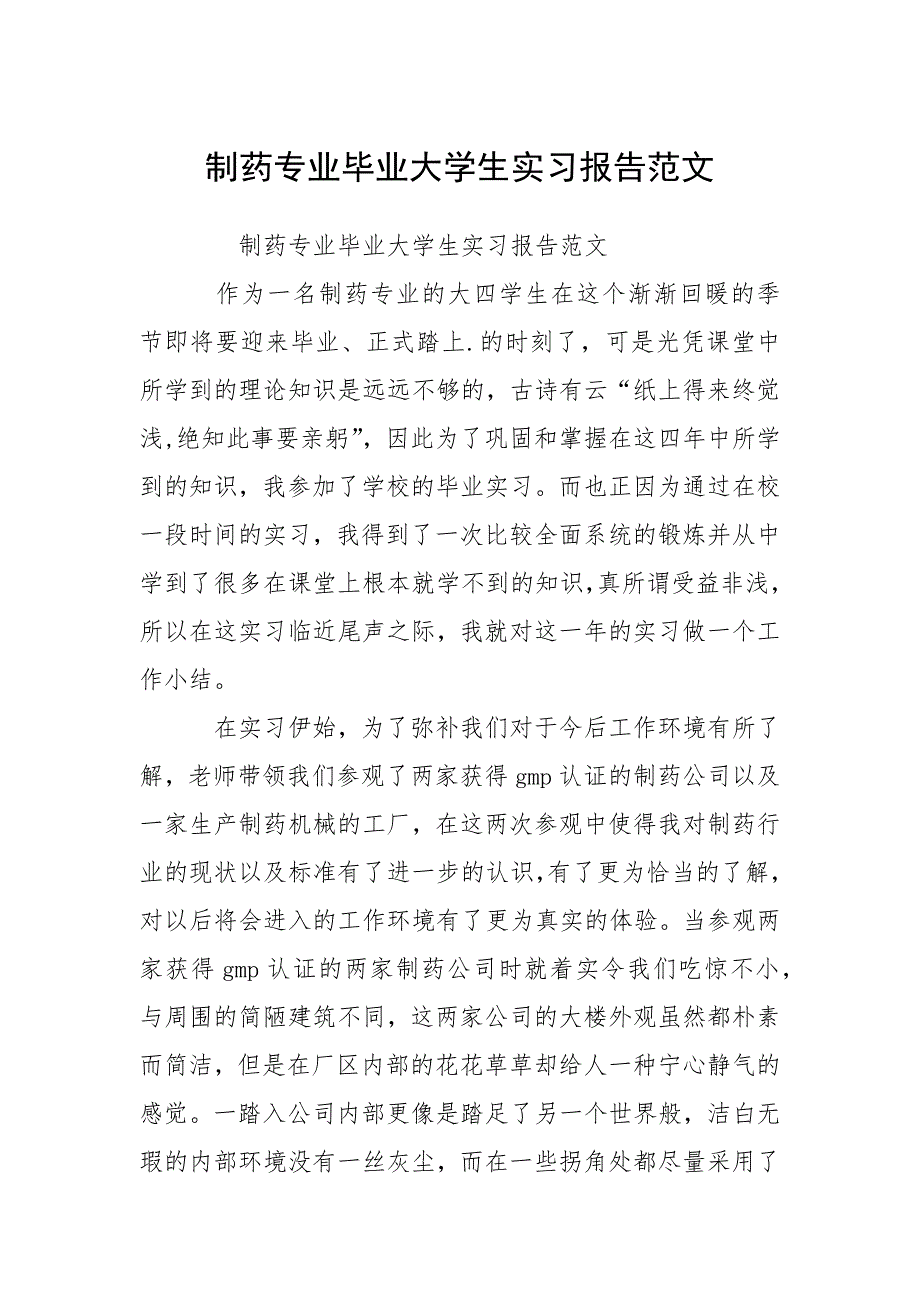 制药专业毕业大学生实习报告范文
制药专业毕业大学生实习报告范文
作为一名制药专业的大四学生在这个渐渐回暖的季
节即将要迎来毕业、正式踏上.的时刻了，可是光凭课堂中
所学到的理论知识是远远不够的，古诗有云“纸上得来终觉
浅,绝知此事要亲躬”，因此为了巩固和掌握在这四年中所学
到的知识，我参加了学校的毕业实习。而也正因为通过在校
一段时间的实习，我得到了一次比较全面系统的锻炼并从中
学到了很多在课堂上根本就学不到的知识,真所谓受益非浅，
所以在这实习临近尾声之际，我就对这一年的实习做一个工
作小结。
在实习伊始，为了弥补我们对于今后工作环境有所了
解，老师带领我们参观了两家获得 gmp 认证的制药公司以及
一家生产制药机械的工厂，在这两次参观中使得我对制药行
业的现状以及标准有了进一步的认识,有了更为恰当的了解，
对以后将会进入的工作环境有了更为真实的体验。当参观两
家获得 gmp 认证的两家制药公司时就着实令我们吃惊不小，
与周围的简陋建筑不同，这两家公司的大楼外观虽然都朴素
而简洁，但是在厂区内部的花花草草却给人一种宁心静气的
感觉。一踏入公司内部更像是踏足了另一个世界般，洁白无
瑕的内部环境没有一丝灰尘，而在一些拐角处都尽量采用了